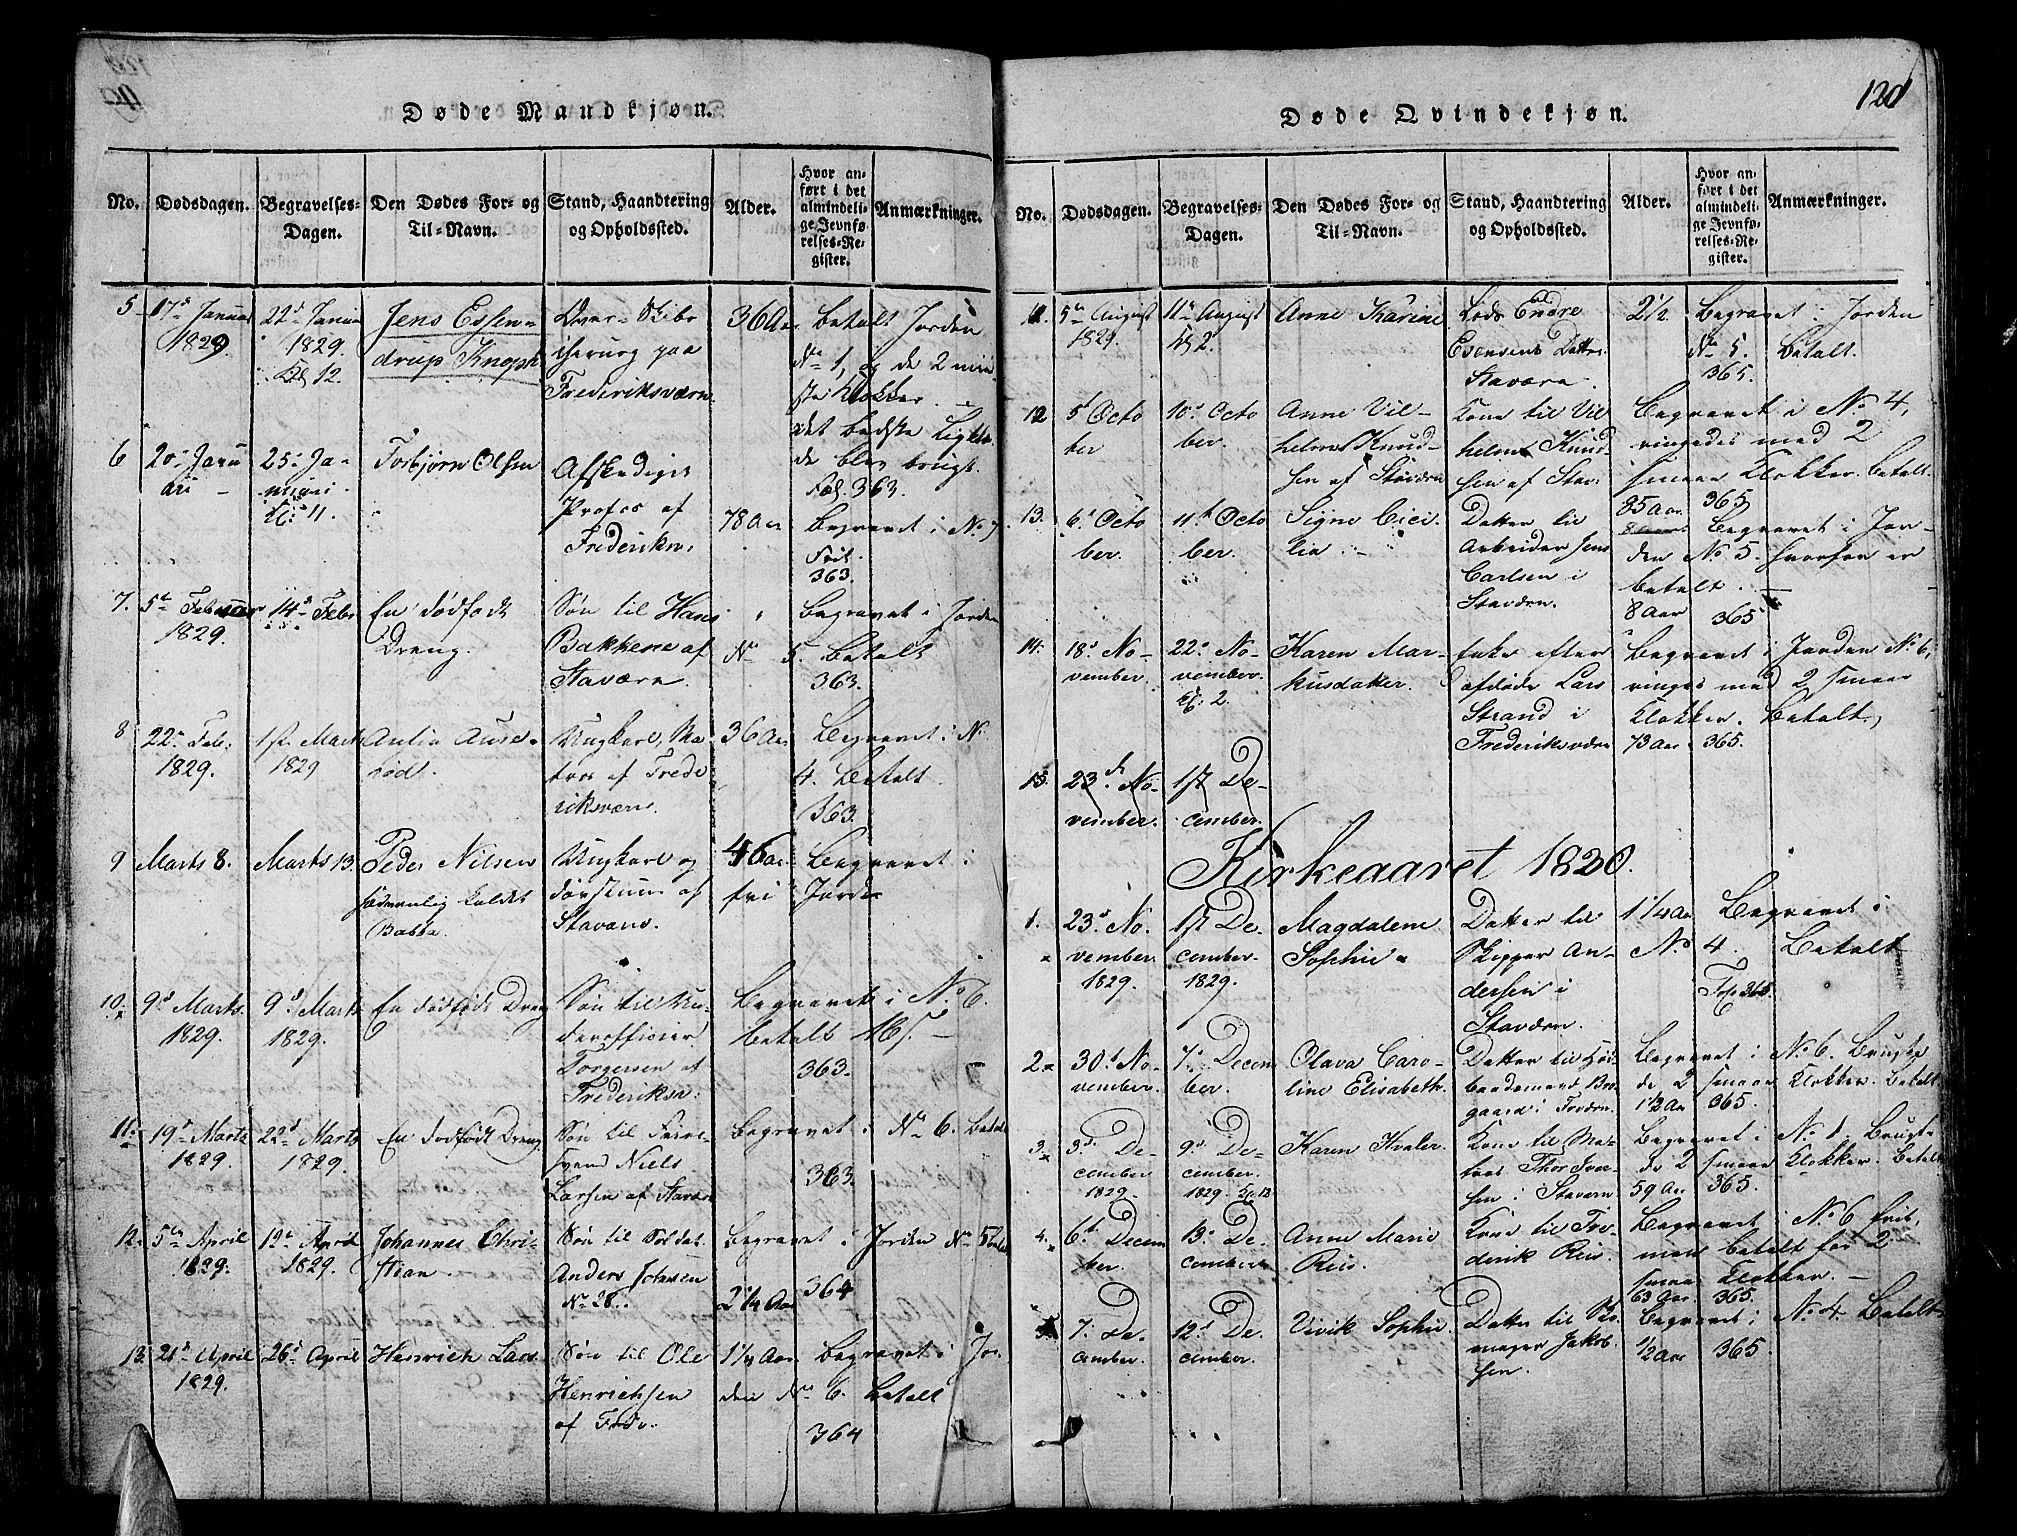 Døde Mandkjøn.
No.
Dødsdagen.
Begravelses-
Dagen.
Den Dødes For- og
Til-Navn.
Stand, Haandtering
og Opholdssted.
Alder.
Hvor an-
ført i det
almindeli-
ge Jevnfø-
relses-Re-
gister.
Anmærkninger.
5
17d Januar
1829
22d Janua
1829.
Kl 12.
Jens Essen-
drup Knoph
Over-Skibs
paa
Frederiksværn.
36 Aar
betalt Jorden
No 1, og de 2 min-
ste Klokker
det bedste Ligklæ-
de blev brugt.
Fol. 363.
6
20d Janu
ari
25d Ja-
nuari
Kl 11.
Torbjørn Olsen
Afskediget
Profos af
Frederiksv.
78 Aar
Begravet i No. 7
Frit.
363.
7.
5te Februar
1829.
14d Febr
En dødfødt
Dreng.
Søn til Hans
Bakkene af
Staværn.
Begravet i Jorden
No 5. betalt
363.
8
22d Feb.
1829.
1ste Marts
1829
36 Aar
Ungkarl, Ma-
tros af Frede-
riksværn.
Begravet i No
4. betalt.
363.
9
Marts 8.
Marts 13.
Peder Nilsen
sædvanlig kaldet
Babba.
Ungkarl og
af
Staværn.
46 Aar
fri
Begravet i
Jorden
10.
9d Marts
1829.
9d Marts
1829.
En dødfødt Dreng
Søn til Un-
derofficier
Torgersen af
Frederiksv.
Begravet i No. 6.
betalt
363.
11.
19d Marts
1829.
22d Marts
1829.
En dødfødt Dreng
Søn til
svend Niels
Larsen af Staværn
Begravet i No 6. Betalt
363.
12.
5te April
1829.
12te April
1829.
Johannes Chri-
stian.
Søn til Soldat
Anders Johnsen
No 28.
Begravet i Jorden No 5 betalt
2 1/4 Aar
364
13.
21d April
1829.
26d April
Henrich Lars.
Søn til Ole
Henrichsen
af Fredv.
1 1/4 Aar
Begravet i Jor-
den No 6. betalt
364
120
Døde Qvindekjøn.
No.
Dødsdagen.
Begravelses-
Dagen.
Den Dødes For- og
Til-Navn.
Stand, Haandtering
og Opholdssted.
Alder.
Hvor an-
ført i det
almindeli-
ge Jevnfø-
relses-Re-
gister.
Anmærkninger.
11.
5te August
1829.
11te August
Kl 2.
Anne Karine
Lods Endre
Esensens Datter
Staværn.
2 1/2
Begravet i Jorden
No 5. betalt.
365.
12
5t Octo
ber
10d Octo
ber.
Anne Vil-
helms Knud-
sen af Staværn
Kone til Vil
helm Knud-
sen af Stav.
Begravet i No 4,
ringedes med 2
smaae Klokker. betalt
35 Aar
365
13.
6t Octo
ber.
11te Octo
ber.
Signe Cici-
lia.
Datter til
Arbeider Jens
Carlsen i
Staværn.
Begravet i Jor-
den No 5. hvorfor er
betalt.
8 Aar
365
14.
18d No-
vember.
22d No-
vember.
Kl. 2.
Karen Mar-
kusdatter.
Enke efter
afdøde Lars
Strand i
Frederiksværn
Begravet i Jorden No 6,
ringes med 2 smaae
Klokker. betalt,
73 Aar
365.
15.
23d No-
vember.
1st De-
cember.
Kirkeaaret 1830.
1.
23d No-
vember
1829.
1st De-
cember
1829.
Magdalene
Sophie
Datter til
Skipper An-
dersen i
Staværn.
1 1/4 Aar
Begravet i
No 4. Betalt
Fol 365.
2
30d No-
vember.
7d Decem
ber.
Olava Caro-
line Elisabeth
Datter til
gaard i Fredværn.
Begravet i No 6. Brugte
de 2 smaae Klokker. betalt
1 1/2 Aar
365.
3
3d De-
cember
1829.
9d De-
cember
1829. Kl 12
Karen Hvaler
Kone til Ma-
tros Thor Iver-
sen i Stavern
Begravet i No 1. Brugte
de 2 smaae Klokker. betalt
59 Aar
365.
4.
6t Decem
ber.
13d De-
cember
Anne Marie
Reis.
Kone til Fre-
derik Reis.
Begravet i No 6 frit,
men betalt for 2
smaae Klokker.
63 Aar.
365.
5
7. De-
cember.
12d De-
cember.
Vivik Sophie
Datter til
Jakob-
sen.
Begravet i No 4. Betalt
1/2 Aar
365.